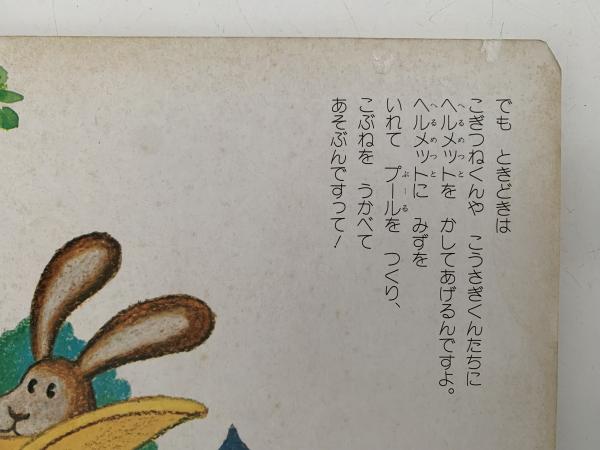 でも ときどきは
こぎつねくんや こうさぎくんたちに
ヘルメットを かしてあげるんですよ。
ヘルメットに みずを
いれて プールを つくり、
こぶねを うかべて
あそぶんですって！